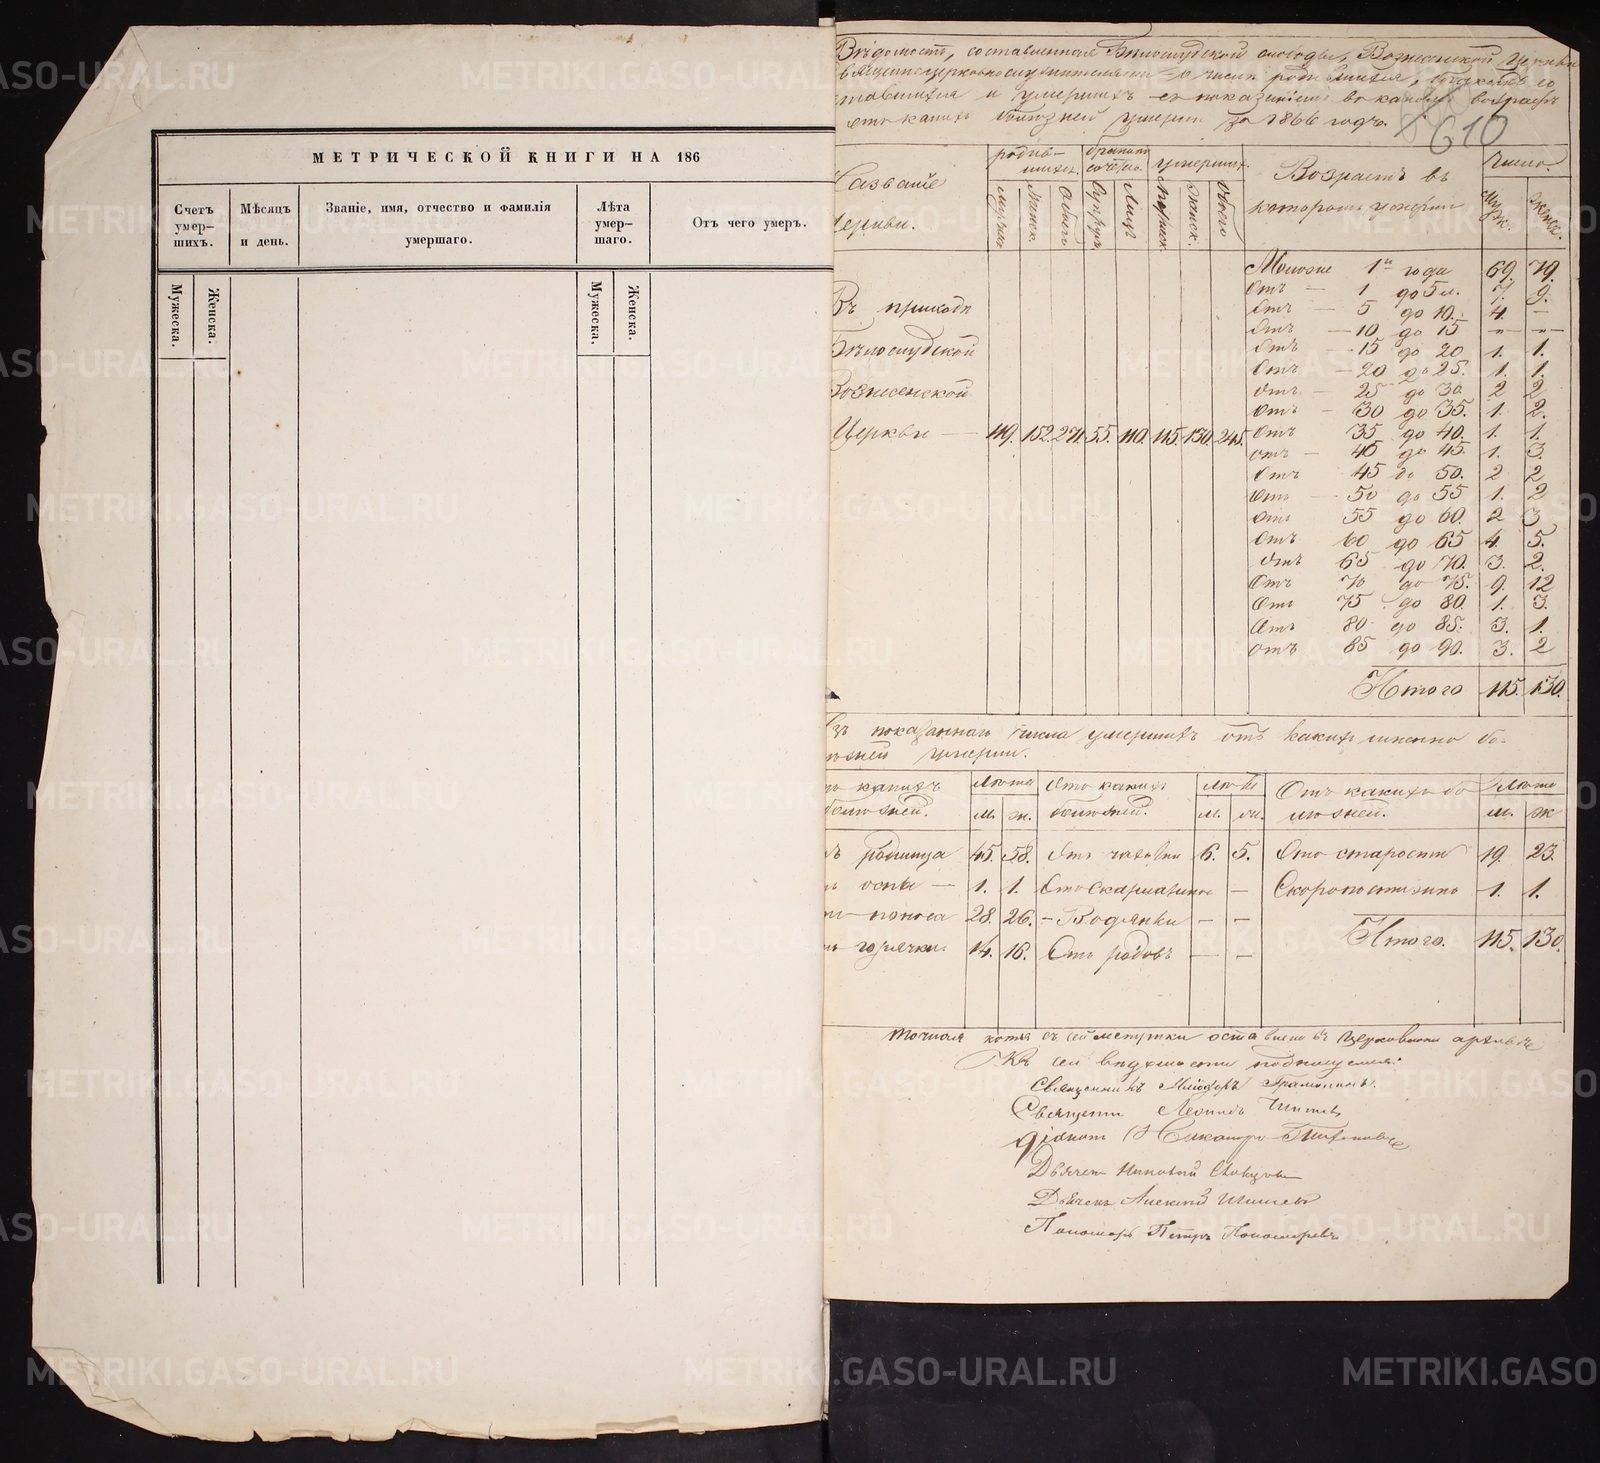 МЕТРИЧЕСКОЙ КНИГИ НА 186
Счетъ умер-шихъ.
Мѣсяцъ и день.
Званіе, имя, отчество и фамилія умершаго.
Лѣта умер-шаго.
Отъ чего умеръ.
Мужеска.
Женска.
Мужеска.
Женска.
Вѣдомость, составленная Бѣлослудской слободы, Вознесенской Церкви
священноцерковнослужителями о числѣ родившихся, бракомъ со
ставшихся и умершихъ съ показаніемъ въ какомъ возрастѣ
отъ какихъ болѣзней умерли за 1866 годъ.
610
Названіе
Церкви.
родив-шихся
умершихъ
Возрастъ въ
которомъ умерли
Число
Муж.
Женск.
Женск.
Обоего
Супруж.
Лицъ
Женск.
Обоего
Въ приходѣ
Бѣлослудской
Вознесенской
Церкви — 119. 152. 271. 55. 110. 115. 130. 245.
Моложе 1го года 69. 79.
Отъ — 1 до 5 л. 7. 9.
Отъ — 5 до 10. 4. —
Отъ — 10 до 15 — —
Отъ — 15 до 20 1. 1.
Отъ — 20 до 25. 1. 1.
Отъ — 25 до 30. 2 2
Отъ — 30 до 35. 1. 2.
Отъ 35 до 40. 1. 1.
Отъ — 40 до 45. 1. 3.
Отъ 45 до 50. 2 2
Отъ — 50 до 55 1. 2
Отъ 55 до 60. 2 3
Отъ 60 до 65 4. 5.
Отъ 65 до 70. 3. 2.
Отъ 70 до 75. 9. 12
Отъ 75 до 80. 1. 3.
Отъ 80 до 85. 3. 1.
Отъ 85 до 90. 3. 2
Итого 115. 130.
Изъ показаннаго числа умершихъ отъ какихъ именно бо-
лѣзней умерли.
какихъ
болѣзней.
м. ж.
Отъ какихъ
болѣзней.
м. ж.
Отъ какихъ бо
лѣзней.
м. ж
родимца 45. 58. Отъ чахотки 6. 5. Отъ старости 19. 23.
оспы — 1. 1. Отъ Скарлатины — Скоропостижно 1. 1.
поноса 28. 26. — Водянки — —
горячки 14. 16. Отъ родовъ — —
Итого. 115. 130.
Точная копія съ сей метрики оставлена въ церковномъ архивѣ
Къ сей вѣдомости подписуемся:
Священникъ
Священникъ Леонидъ
Діаконъ Никаноръ
Дьячекъ Николай
Дьячекъ Алексѣй
Пономарь Петръ Пономаревъ
METRIKI.GASO-URAL.RU